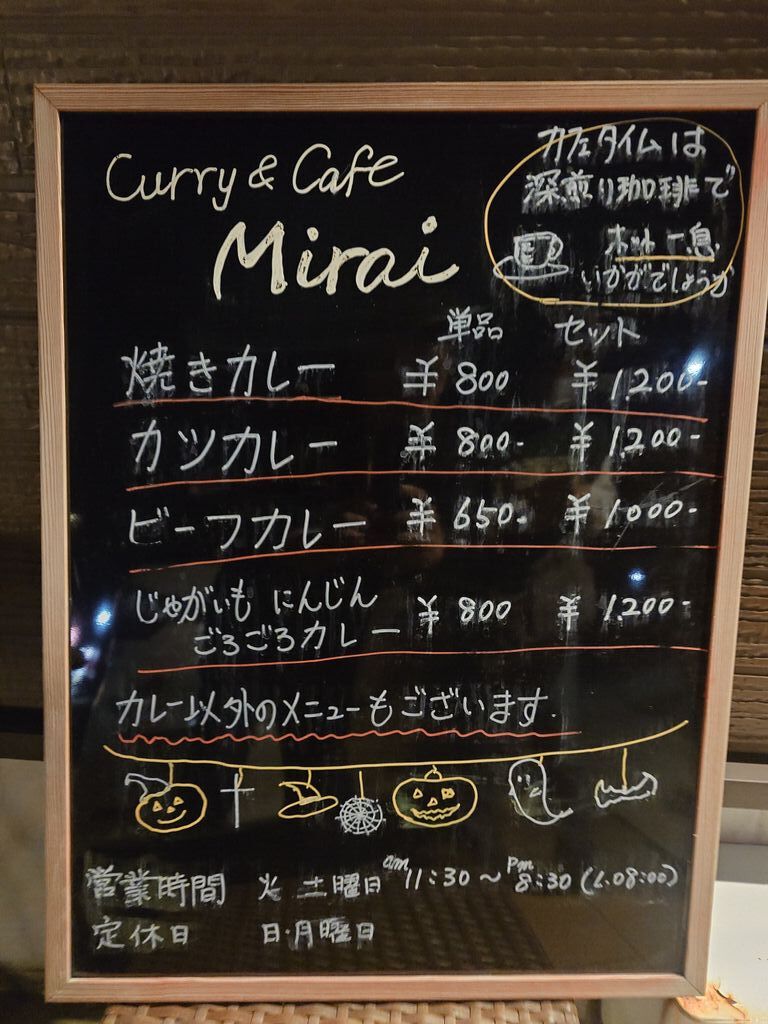 Curry & Cafe
Mirai
カフェタイムは
深煎り珈琲で
ホット一息
いかがでしょうか
単品 セット
焼きカレー ¥800 ¥1,200-
カツカレー ¥800- ¥1,200-
ビーフカレー ¥650- ¥1000-
じゃがいも にんじん
ごろごろカレー ¥800 ¥1,200-
カレー以外のメニューもございます.
営業時間 火 土曜日 am11:30～pm8:30(L.O8:00)
定休日 日・月曜日